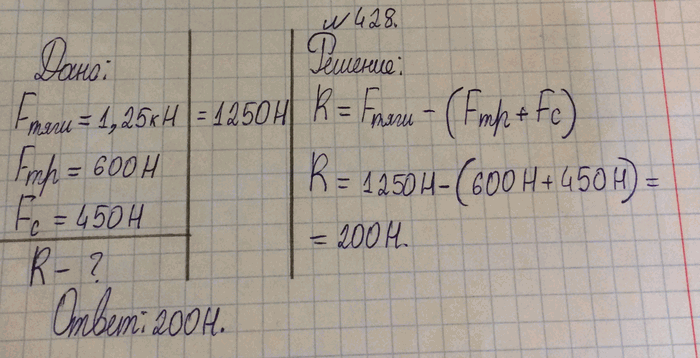 № 428.
Дано:
Fтяги = 1,25кН = 1250Н
Fтр = 600Н
Fс = 450Н
R - ?
Решение:
R = Fтяги - (Fтр + Fс)
R = 1250Н - (600Н + 450Н) =
= 200Н.
Ответ: 200Н.